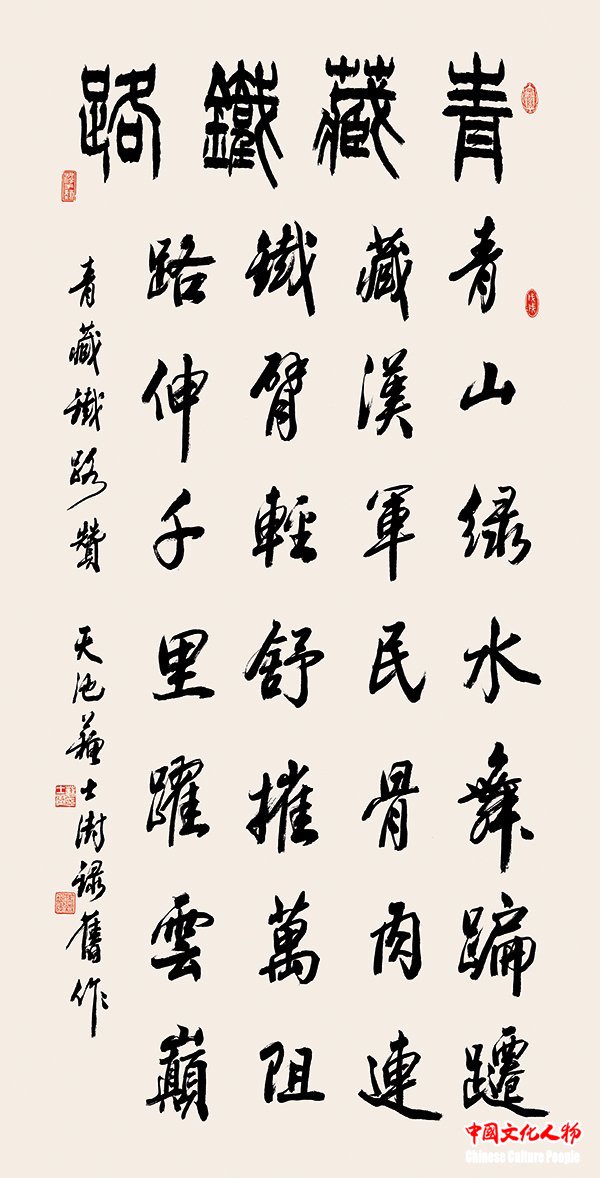 青藏鐵路
青山緑水舞蹁躚
藏漢軍民骨肉連
鐵臂輕舒摧萬阻
路伸千里躍雲巔
青藏鐵路贊 天池蘇士澍録舊作
戊戌
中國文化人物
Chinese Culture People